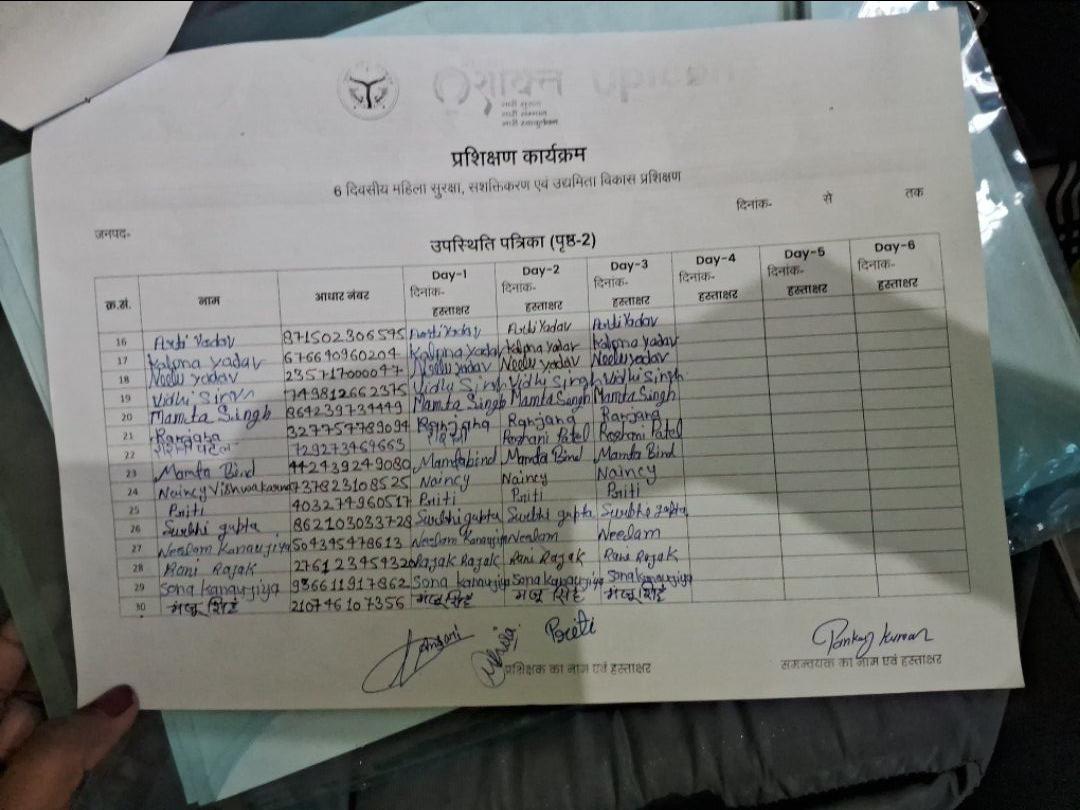 सशक्त
नारी सुरक्षा
नारी सम्मान
नारी स्वावलंबन
प्रशिक्षण कार्यक्रम
6 दिवसीय महिला सुरक्षा, सशक्तिकरण एवं उद्यमिता विकास प्रशिक्षण
दिनांक- से तक
जनपद-
उपस्थिति पत्रिका (पृष्ठ-2)
क्र.सं. नाम आधार नंबर Day-1 दिनांक- हस्ताक्षर Day-2 दिनांक- हस्ताक्षर Day-3 दिनांक- हस्ताक्षर Day-4 दिनांक- हस्ताक्षर Day-5 दिनांक- हस्ताक्षर Day-6 दिनांक- हस्ताक्षर
16 Arti Yadav 871502306595 Arti Yadav Arti Yadav Arti Yadav
17 Kalpna yadav 676690960204 Kalpna yadav Kalpna yadav Kalpna yadav
18 Neelu yadav 235717000047 Neelu yadav Neelu yadav Neelu yadav
19 Vidhi Singh 749812662375 Vidhi Singh Vidhi Singh Vidhi Singh
20 Mamta Singh 864239734449 Mamta Singh Mamta Singh Mamta Singh
21 Ranjana 327757789094 Ranjana Ranjana Ranjana
22 रोशनी पटेल 729273469663 रोशनी Roshani Patel Roshani Patel
23 Mamta Bind 442439249080 Mamtabind Mamta Bind Mamta Bind
24 Naincy Vishwakarma 737823108525 Naincy Naincy Naincy
25 Priti 403274960517 Priti Priti Priti
26 Surbhi gupta 862103033728 Surbhi gupta Surbhi gupta Surbhi gupta
27 Neelam Kanaujiya 504345478613 Neelam Kanaujiya Neelam Neelam
28 Rani Rajak 276123454320 Rajak Rajak Rani Rajak Rani Rajak
29 Sona kanaujiya 936611917862 Sona kanaujiya Sona kanaujiya Sona kanaujiya
30 मंजू सिंह 210746107356 मंजू सिंह मंजू सिंह मंजू सिंह
Priti Pankaj kumar
प्रशिक्षक का नाम एवं हस्ताक्षर समन्वयक का नाम एवं हस्ताक्षर